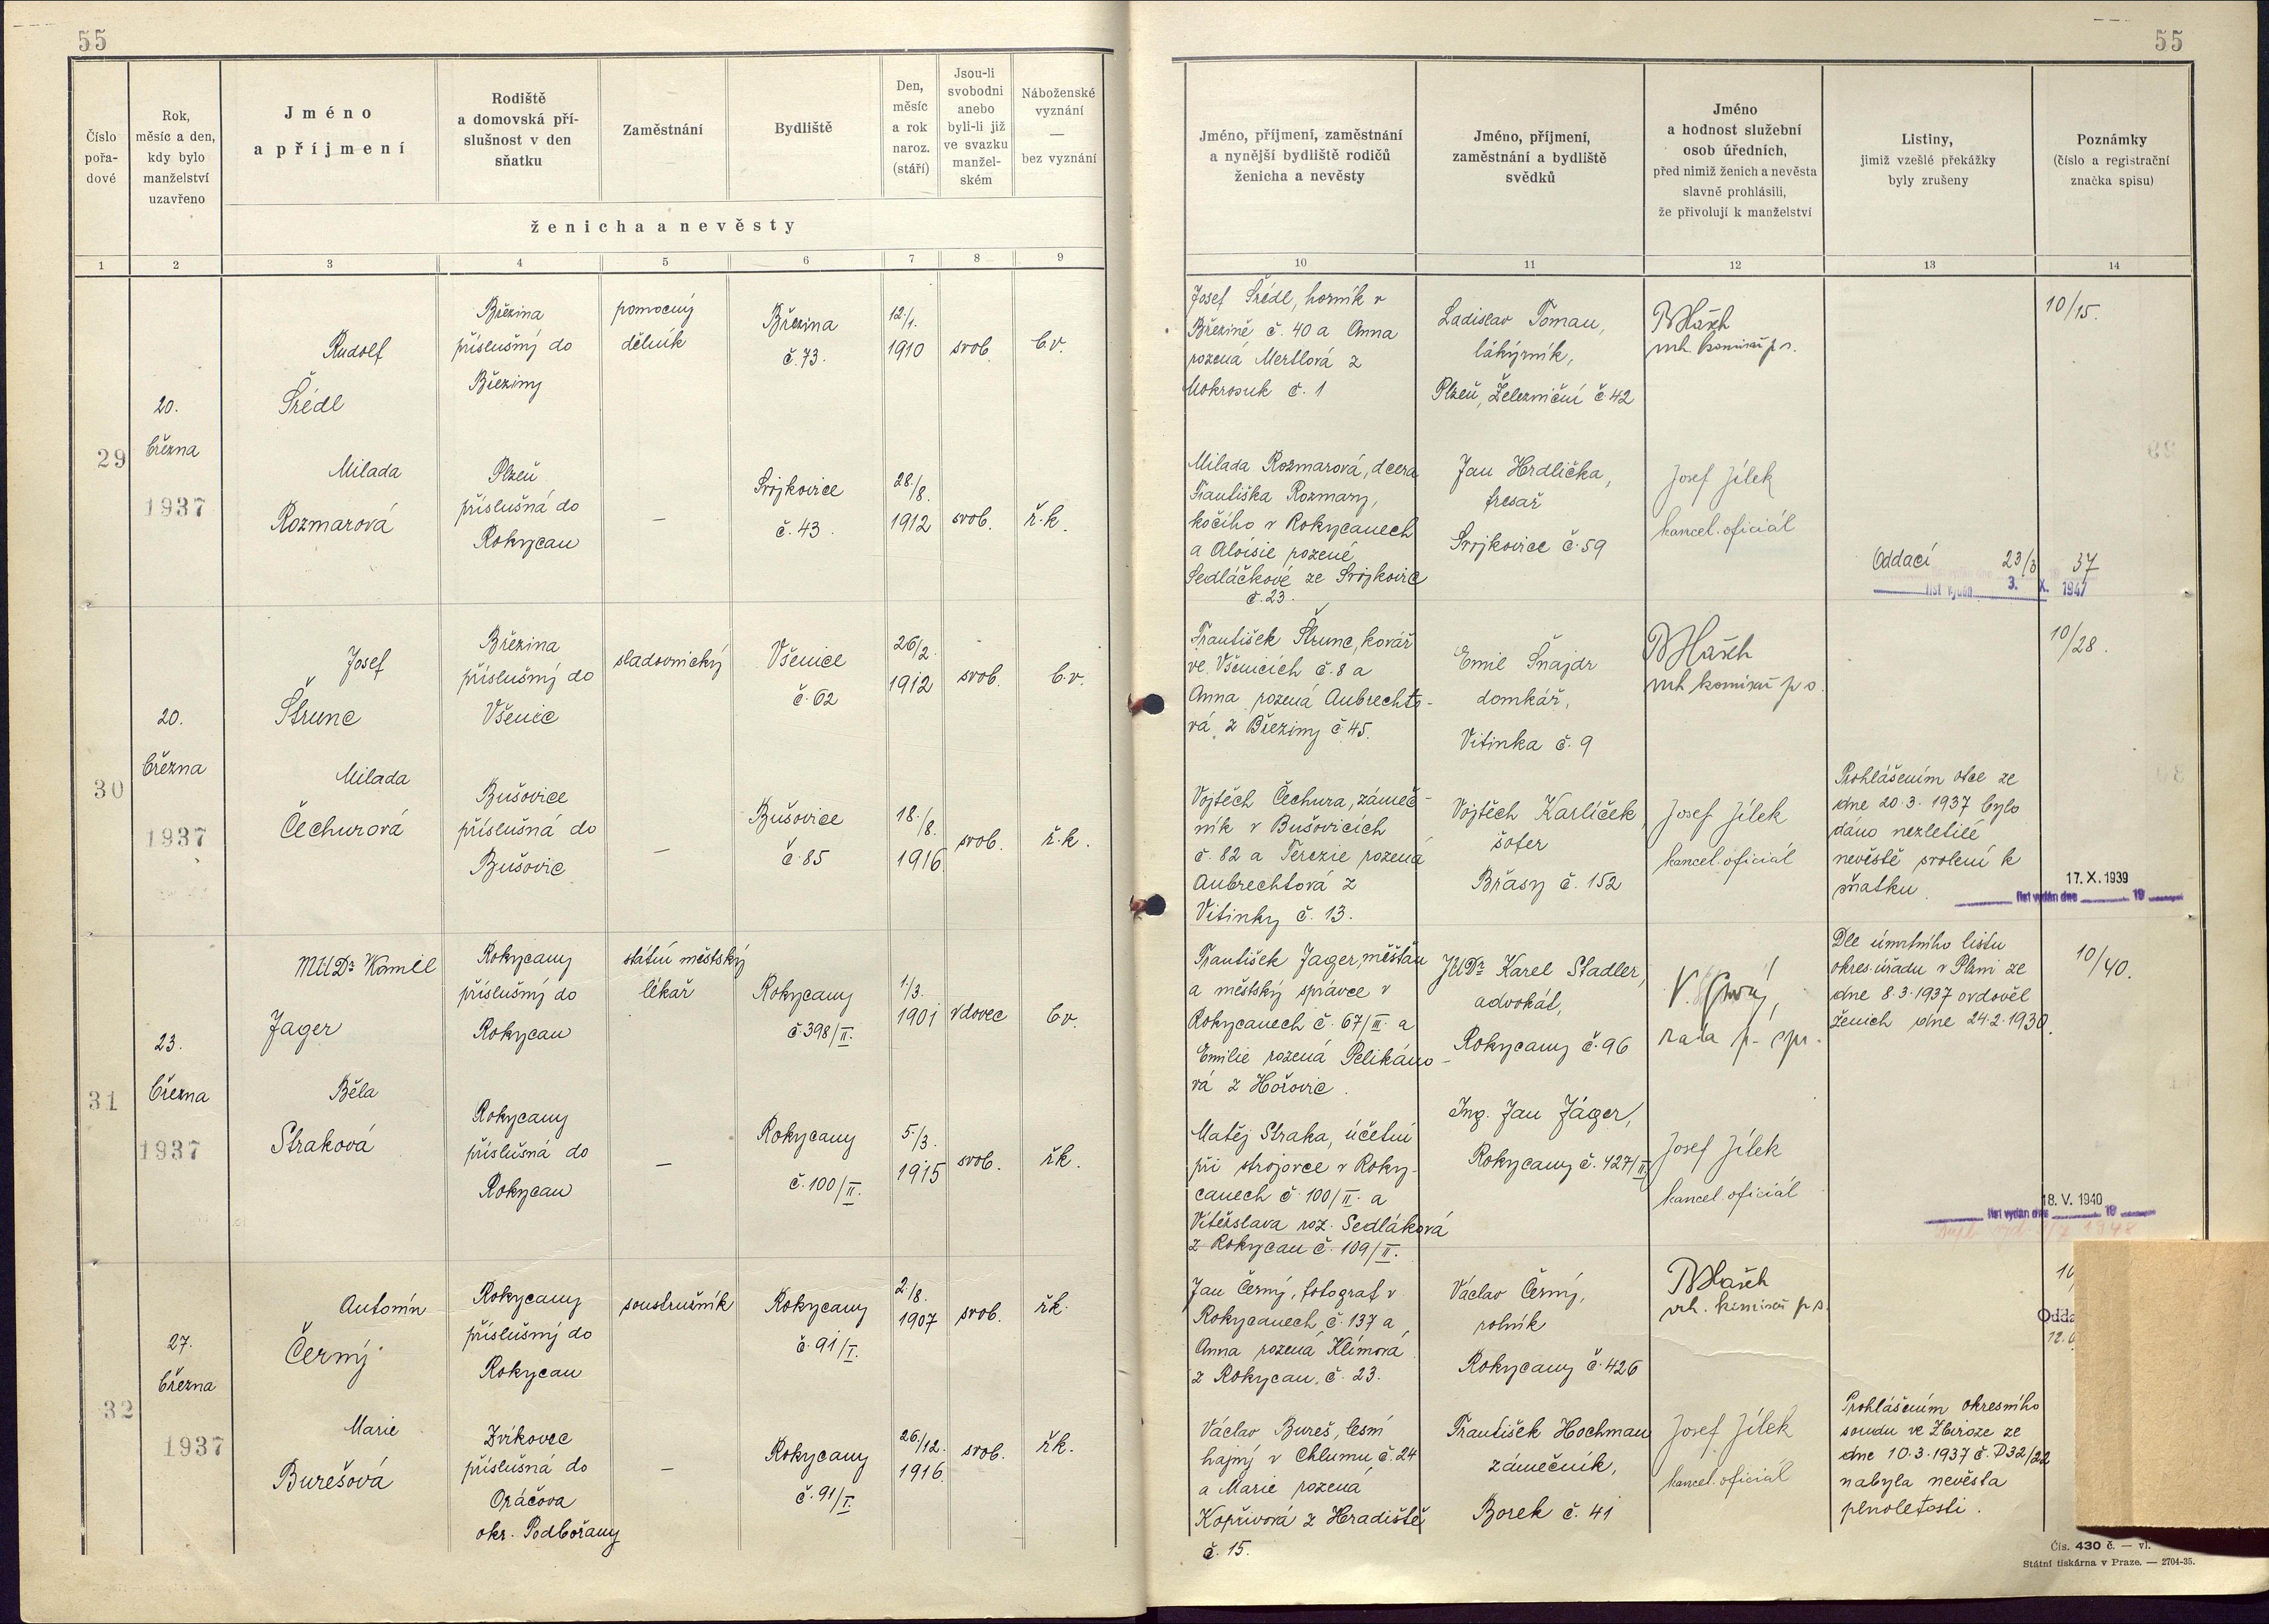 55
Číslo
pořa-
dové
Rok,
měsíc a den,
kdy bylo
manželství
uzavřeno
Jméno
a příjmení
Rodiště
a domovská pří-
slušnost v den
sňatku
Zaměstnání
Bydliště
Den,
měsíc
a rok
naroz.
(stáří)
Jsou-li
svobodni
anebo
byli-li již
ve svazku
manžel-
ském
Náboženské
vyznání
—
bez vyznání
ženicha a nevěsty
1 2 3 4 5 6 7 8 9
29
20.
března
1937
Rudolf
Šrédl
Březina
příslušný do
Březiny
pomocný
dělník
Březina
č. 73.
12./1.
1910
svob.
b.v.
Milada
Rozmarová
Plzeň
příslušná do
Rokycan
—
Svojkovice
č. 43.
28./8.
1912
svob.
ř.k.
30
20.
března
1937
Josef
Štrunc
Březina
příslušný do
Všenic
sladovnický
Všenice
č. 62
26/2.
1912
svob.
b.v.
Milada
Čechurová
Bušovice
příslušná do
Bušovic
—
Bušovice
č. 85
18./8.
1916.
svob.
ř.k.
31
23.
března
1937
MUDr Kamil
Jager
Rokycany
příslušný do
Rokycan
státní městský
lékař
Rokycany
č 398/II.
1./3.
1901
vdovec
b.v.
Běla
Straková
Rokycany
příslušná do
Rokycan
—
Rokycany
č. 100/II.
5./3.
1915
svob.
řk.
32
27.
března
1937
Antonín
Černý
Rokycany
příslušný do
Rokycan
soustružník
Rokycany
č. 91/I.
2./8.
1907
svob.
řk.
Marie
Burešová
Zvíkovec
příslušná do
Oráčova
okr. Podbořany
—
Rokycany
č. 91/I.
26./12.
1916.
svob.
řk.
55
Jméno, příjmení, zaměstnání
a nynější bydliště rodičů
ženicha a nevěsty
Jméno, příjmení,
zaměstnání a bydliště
svědků
Jméno
a hodnost služební
osob úředních,
před nimiž ženich a nevěsta
slavně prohlásili,
že přivolují k manželství
Listiny,
jimiž vzešlé překážky
byly zrušeny
Poznámky
(číslo a registrační
značka spisu)
10 11 12 13 14
Josef Šrédl, horník v
Březině č. 40 a Anna
rozená Mertlová z
Mokrosuk č. 1
Ladislav Toman,
láhýrník,
Plzeň, Železniční č 42
vrh. komisař p s.
10/15.
Milada Rozmarová, dcera
Františka Rozmary,
kočího v Rokycanech
a Aloisie rozené
Sedláčkové ze Svojkovic
č. 23.
Jan Hrdlička,
fresař
Svojkovice č. 59
Josef Jílek
kancel. oficiál
Oddací 23/3 37
list vydán 3. X. 1947
František Štrunc, kovář
ve Všenicích č. 8 a
Anna rozená Aubrechto-
vá z Březiny č 45.
Emil Šnajdr
domkář,
Vitinka č. 9
vrh komisař p s.
10/28.
Vojtěch Čechura, zámeč-
ník v Bušovicích
č. 82 a Terezie rozená
Aubrechtová z
Vitinky č. 13.
Vojtěch Karlíček,
šofer
Břasy č. 152
Josef Jílek
kancel. oficiál
Prohlášením otce ze
dne 20.3.1937 bylo
dáno nezletilé
nevěstě svolení k
sňatku.
17. X. 1939
list vydán dne 19
František Jager, měšťan
a městský správce v
Rokycanech č. 67/II. a
Emilie rozená Pelikáno-
vá z Hořovic.
JUDr Karel Stadler,
advokát,
Rokycany č. 96
rada p. spr.
Dle úmrtního listu
okres. úřadu v Plzni ze
dne 8.3.1937 ovdověl
ženich dne 24.2.1930.
10/40.
Matěj Straka, účetní
při strojovce v Roky-
canech č. 100/II. a
Vítězslava roz. Sedláková
z Rokycan č. 109/II.
Ing. Jan Jáger,
Rokycany č. 427/II
Josef Jílek
kancel. oficiál
18. V. 1940
list vydán dne 19
Jan Černý, fotograf v
Rokycanech č. 137 a
Anna rozená Klímová
z Rokycan, č. 23.
Václav Černý,
rolník
Rokycany č. 426
vrh. komisař p s.
10
Odda
Václav Bureš, lesní
hajný v Chlumu č. 24
a Marie rozená
Kopřivová z Hradiště
č. 15.
František Hochman
zámečník,
Borek č. 41
Josef Jílek
kancel. oficiál
Prohlášením okresního
soudu ve Zbiroze ze
dne 10.3.1937 č. P32/22
nabyla nevěsta
plnoletosti.
Čís. 430 č. — vl.
Státní tiskárna v Praze. — 2704-35.